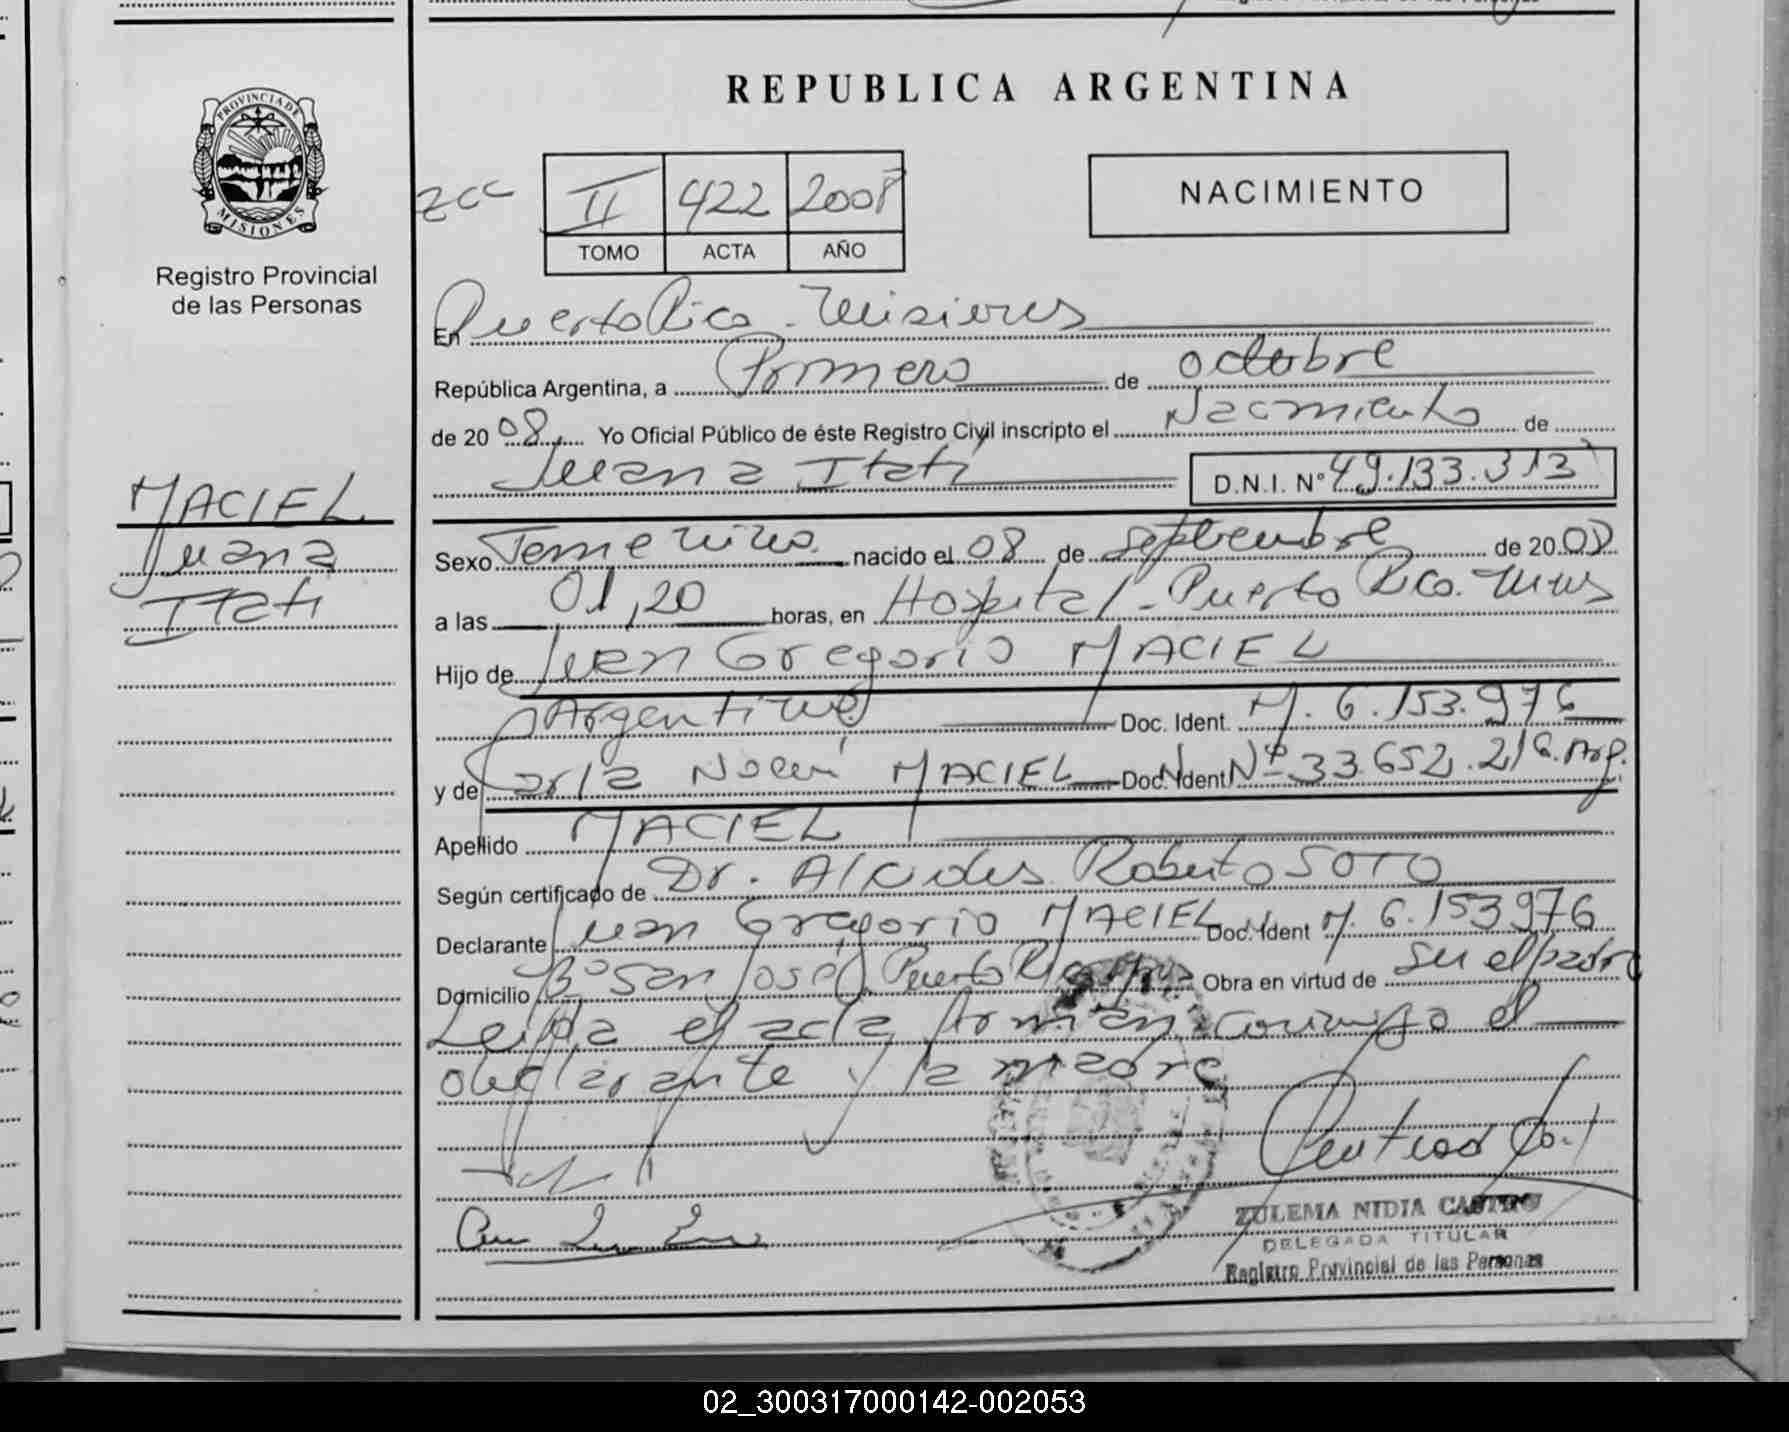 REPUBLICA ARGENTINA
PROVINCIA DE
MISIONES
Registro Provincial
de las Personas
II 422 2008
TOMO ACTA AÑO
NACIMIENTO
En Puerto Rico - Misiones
República Argentina, a Primero de octubre
de 2008 Yo Oficial Público de éste Registro Civil inscripto el Nacimiento de
Juana Itatí D.N.I. Nº 49.133.313
MACIEL
Juana
Itatí
Sexo Femenino nacido el 08 de septiembre de 2008
a las 01,20 horas, en Hospital - Puerto Rico. Mnes
Hijo de Juan Gregorio MACIEL
Argentino Doc. Ident. M. 6.153.976
y de Carla Noemí MACIEL Doc. Ident Nº 33.652.216. Arg.
Apellido MACIEL
Según certificado de Dr. Alcides Roberto SOTO
Declarante Juan Gregorio MACIEL Doc. Ident M. 6.153976
Domicilio Bº San José Puerto Rico Obra en virtud de ser el padre
Leída el acta, firman conmigo el
declarante y la madre
ZULEMA NIDIA CASTRO
DELEGADA TITULAR
Registro Provincial de las Personas
02_300317000142-002053